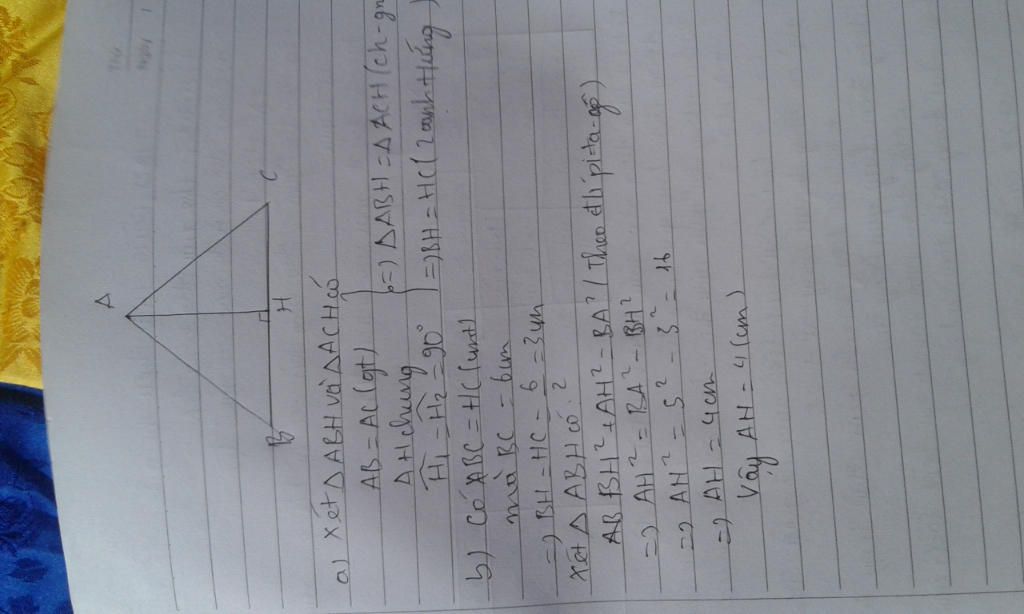 A
B
H
C
a) Xét Δ ABH và Δ ACH có
AB = AC (gt)
AH chung
Ĥ1 = Ĥ2 = 90°
=) Δ ABH = Δ ACH (ch-gn
=) BH = HC (2 cạnh
b) Có ABC = HC (cmt)
mà BC = 6cm
=) BH = HC = 6/2 = 3cm
Xét Δ ABH có:
AB BH² + AH² = BA² (Theo đlí pi-ta-go)
=) AH² = BA² - BH²
=) AH² = 5² - 3² = 16
=) AH = 4cm
Vậy AH = 4 (cm)